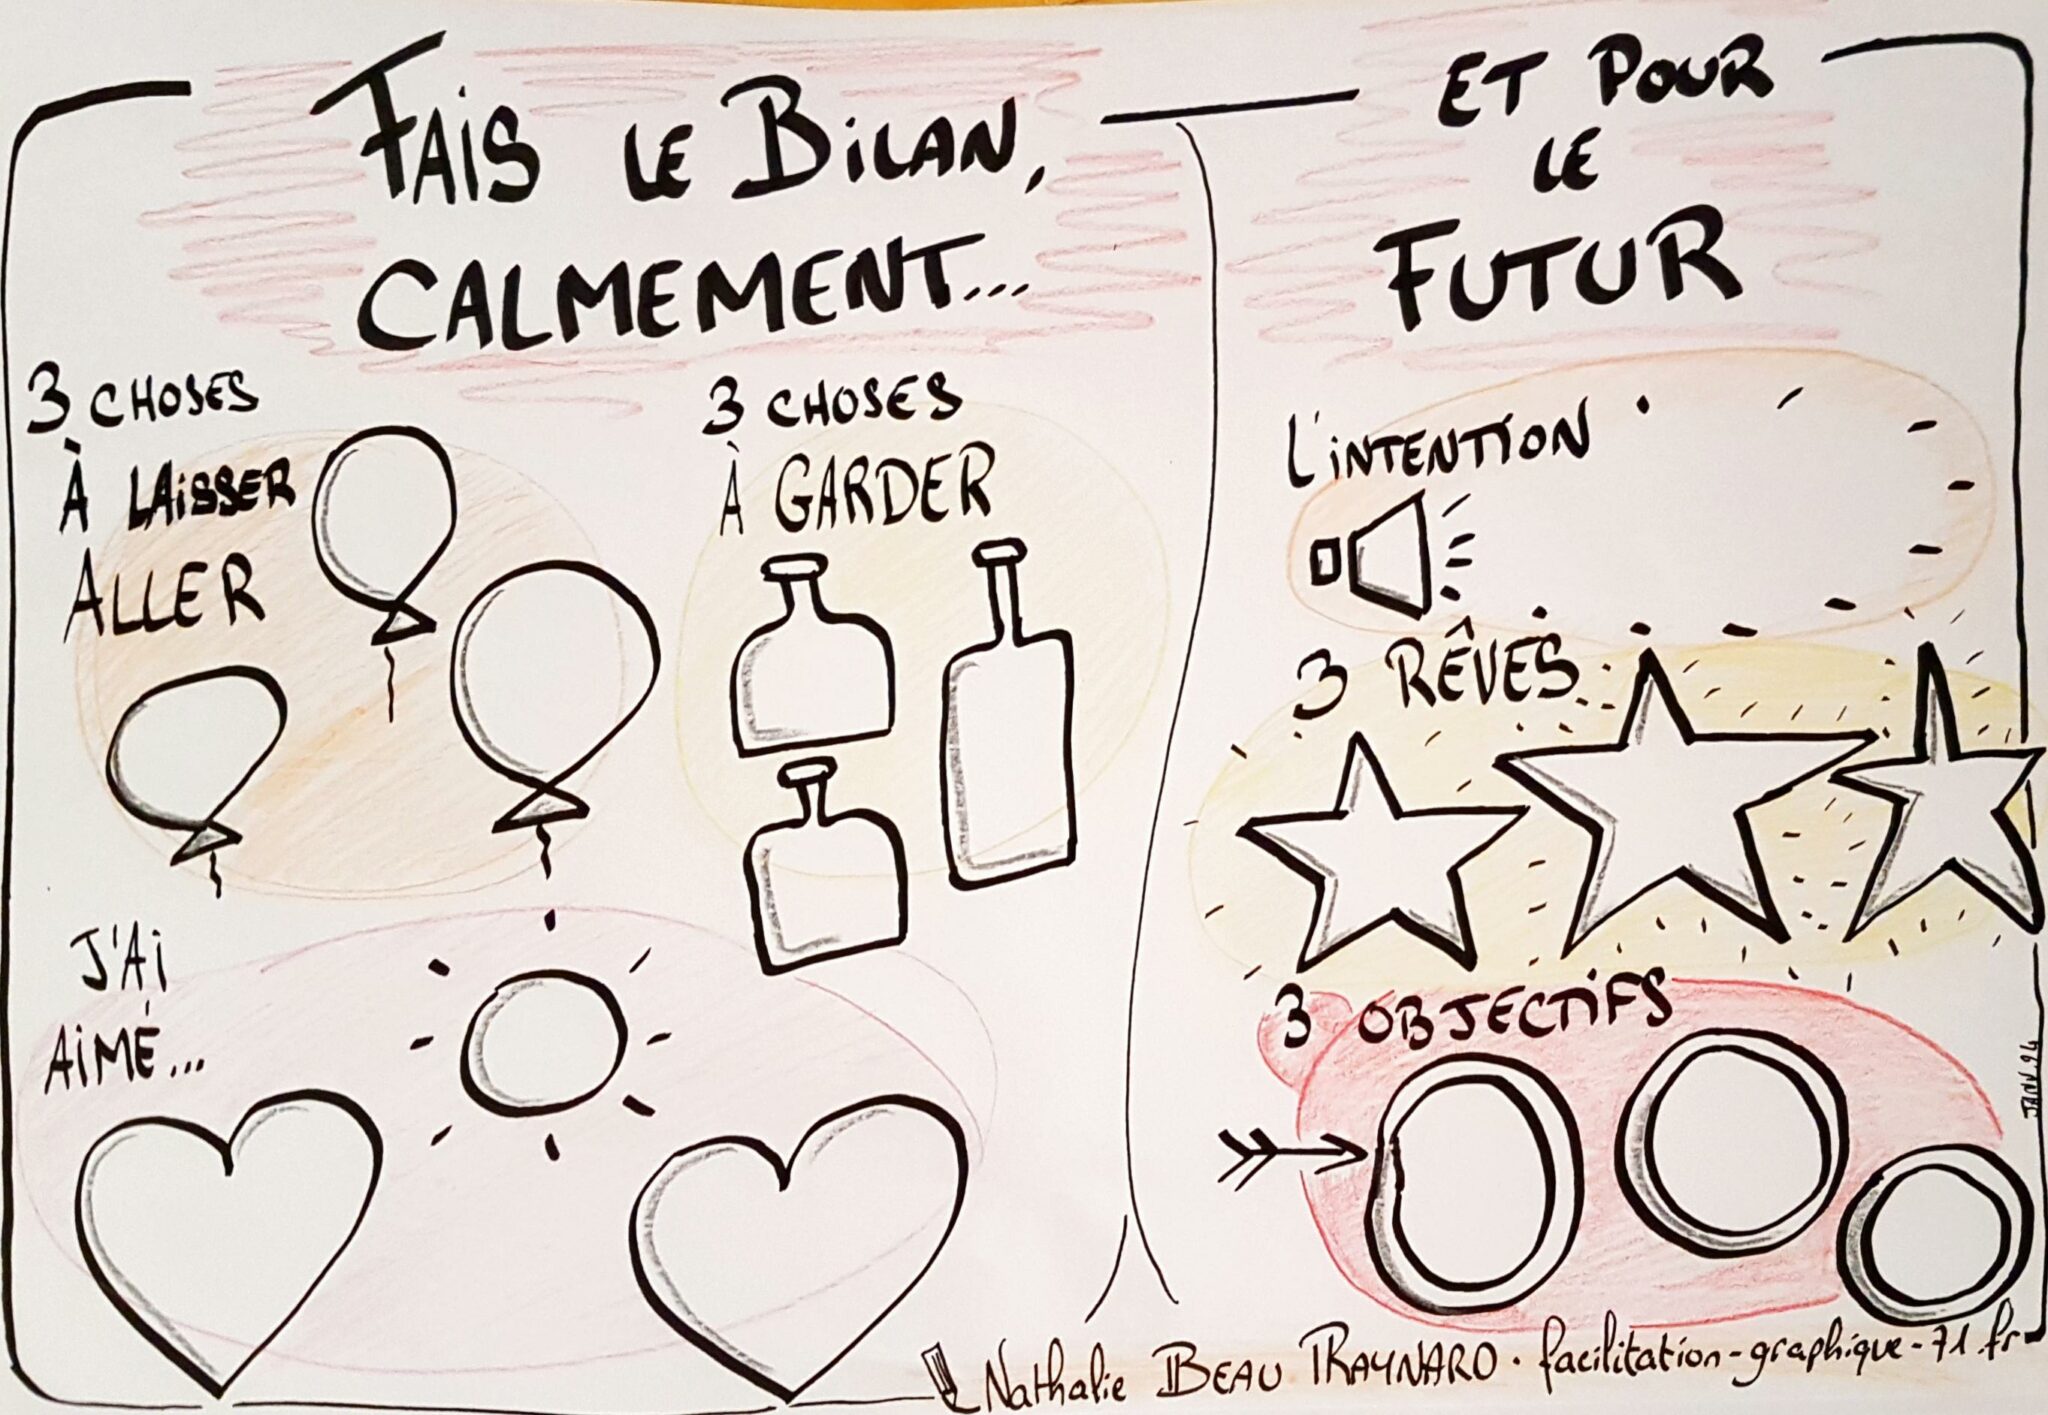 FAIS LE BILAN,
CALMEMENT...
3 CHOSES
À LAISSER
ALLER
3 CHOSES
À GARDER
J'AI
AIMÉ...
ET POUR
LE
FUTUR
L'INTENTION
3 RÊVES
3 OBJECTIFS
JANV. 24
Nathalie BEAU RAYNARD. facilitation-graphique-71.fr